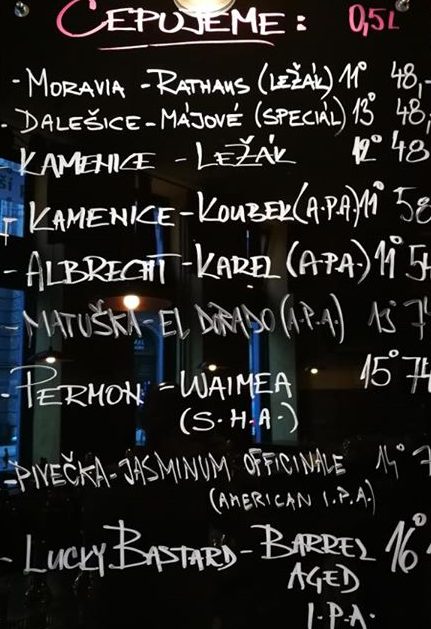 ČEPUJEME: 0,5L
- MORAVIA - RATHAUS (LEŽÁK) 11° 48,-
- DALEŠICE - MÁJOVÉ (SPECIÁL) 13° 48,
KAMENICE - LEŽÁK 12° 48
- KAMENICE - KOUBEK (A.P.A.) 11° 58
- ALBRECHT - KAREL (A.P.A.) 11° 5
- MATUŠKA - EL DORADO (I.P.A.) 13 7
- PERMON - WAIMEA 15° 74
(S.H.A.)
- PIVEČKA - JASMINUM OFFICINALE 14° 7
(AMERICAN I.P.A.)
- LUCKY BASTARD - BARREL 16°
AGED
I.P.A.